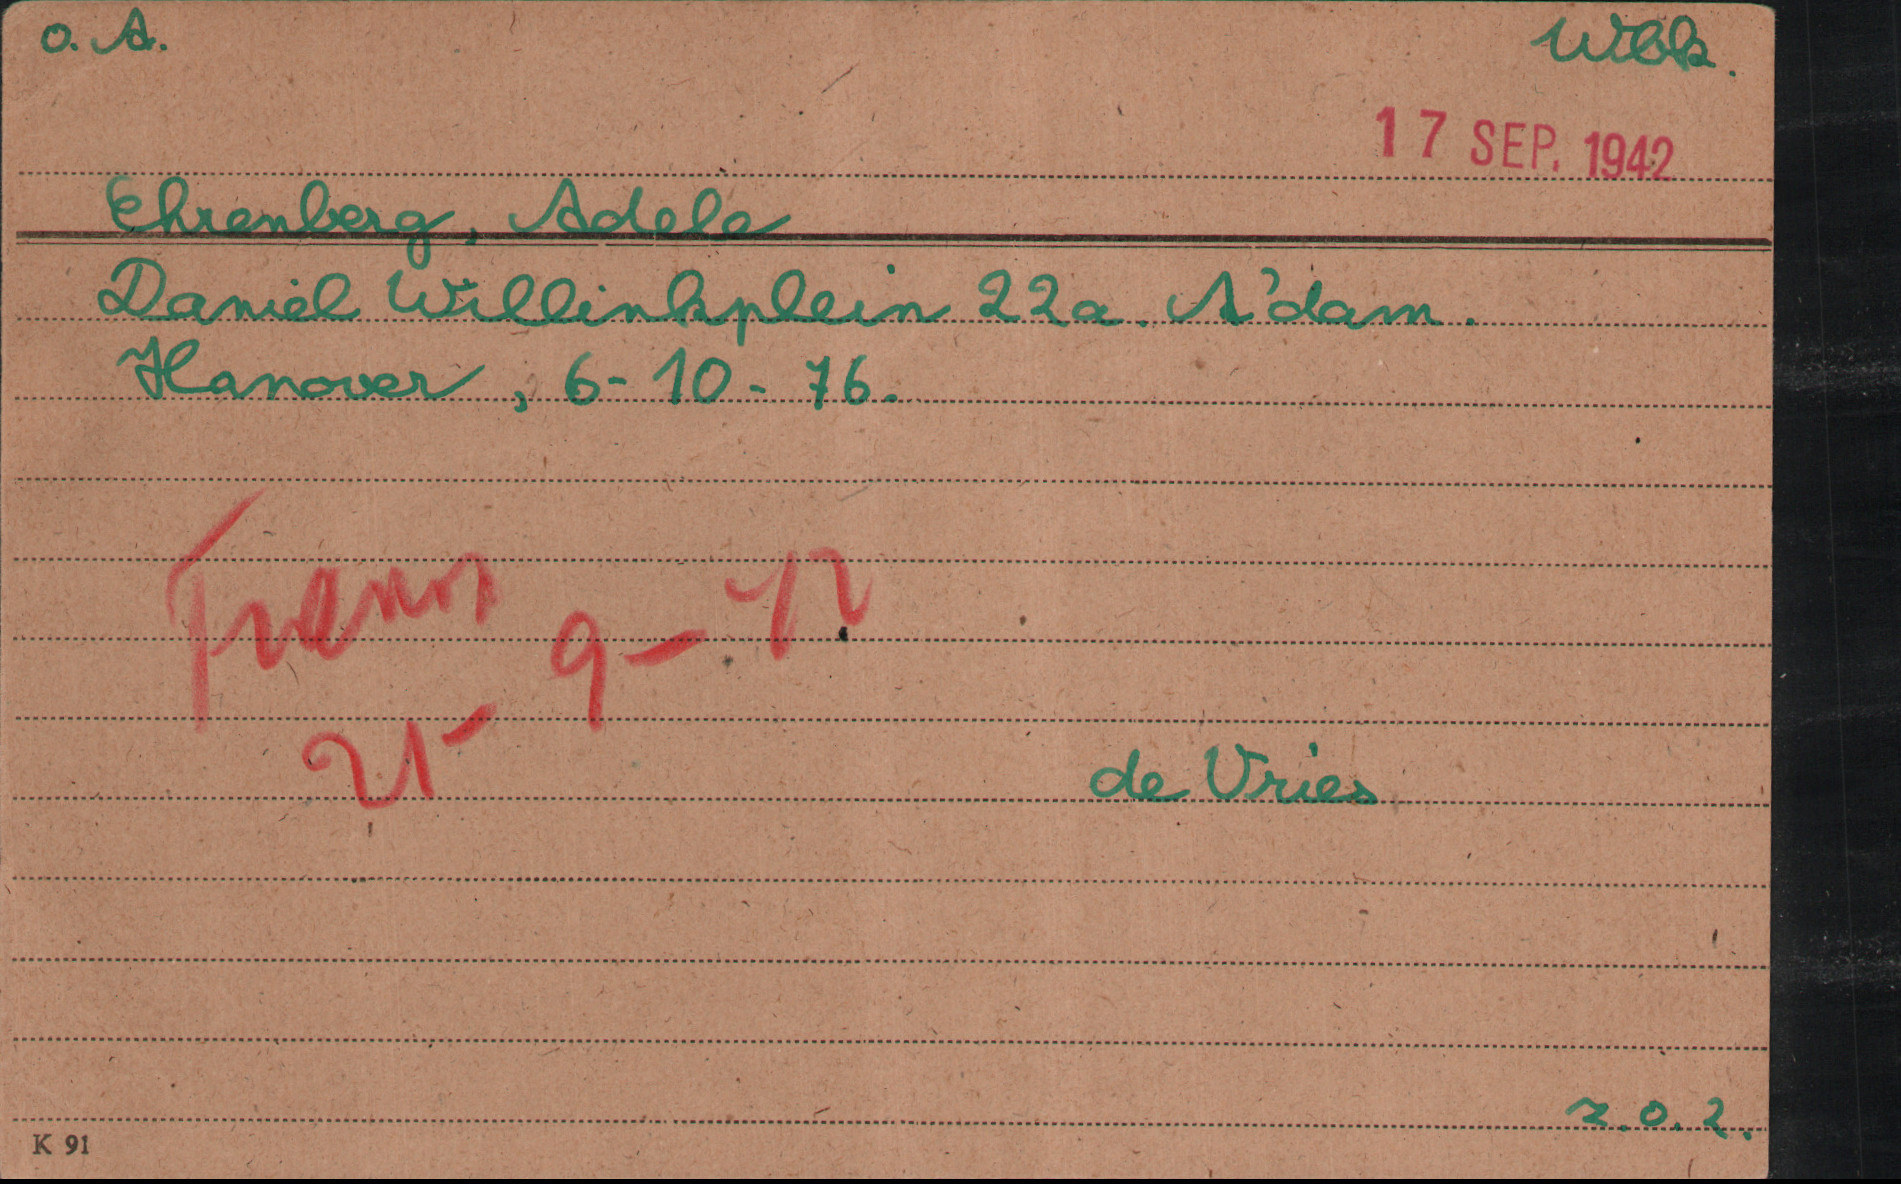 o. A.
Wbk.
17 SEP. 1942
Ehrenberg, Adele
Daniel Willinkplein 22a. A'dam.
Hanover, 6-10-76.
Trans
21- 9-42
de Vries
z.o.2.
K 91